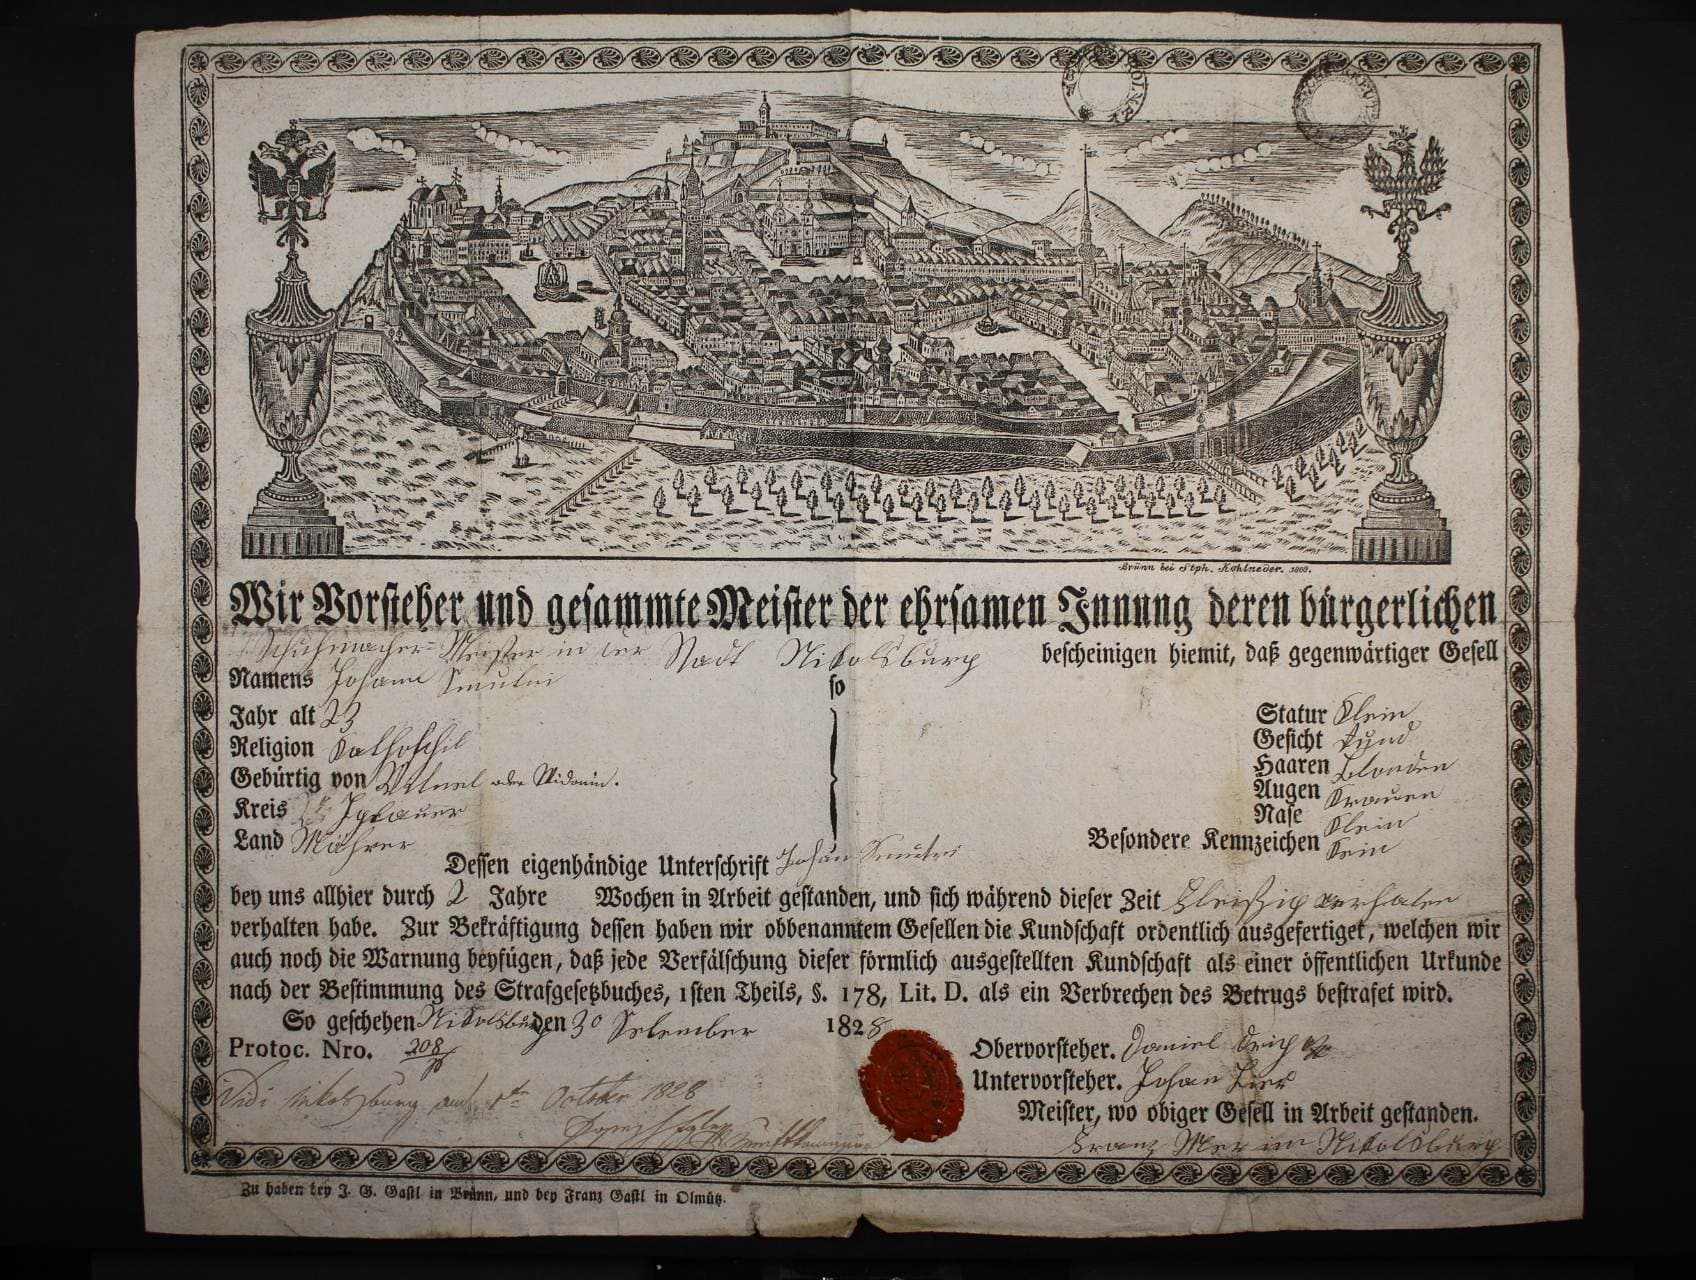 Brünn bei Stph. Kohlneder. 1808.
Wir Vorsteher und gesammte Meister der ehrsamen Innung deren bürgerlichen
Schuhmacher-Meister in der Stadt Nikolsburg bescheinigen hiemit, daß gegenwärtiger Gesell
Namens Johann
so
Jahr alt 23
Statur Klein
Religion
Gesicht Rund
Haaren blonden
Gebürtig von
Augen Krauen
Kreis Iglauer
Nase Klein
Land Mährer
Besondere Kennzeichen Kein
Dessen eigenhändige Unterschrift Johan
bey uns allhier durch 2 Jahre Wochen in Arbeit gestanden, und sich während dieser Zeit
verhalten habe. Zur Bekräftigung dessen haben wir obbenanntem Gesellen die Kundschaft ordentlich ausgefertiget, welchen wir
auch noch die Warnung beyfügen, daß jede Verfälschung dieser förmlich ausgestellten Kundschaft als einer öffentlichen Urkunde
nach der Bestimmung des Strafgesetzbuches, 1sten Theils, §. 178, Lit. D. als ein Verbrechen des Betrugs bestrafet wird.
So geschehen Nikolsburg den 30 1828
Protoc. Nro. 208
Obervorsteher. Daniel
Untervorsteher. Johan
Meister, wo obiger Gesell in Arbeit gestanden.
Vidi Nikolsburg am October 1828
Franz in
Zu haben bey J. G. Gastl in Brünn, und bey Franz Gastl in Olmütz.